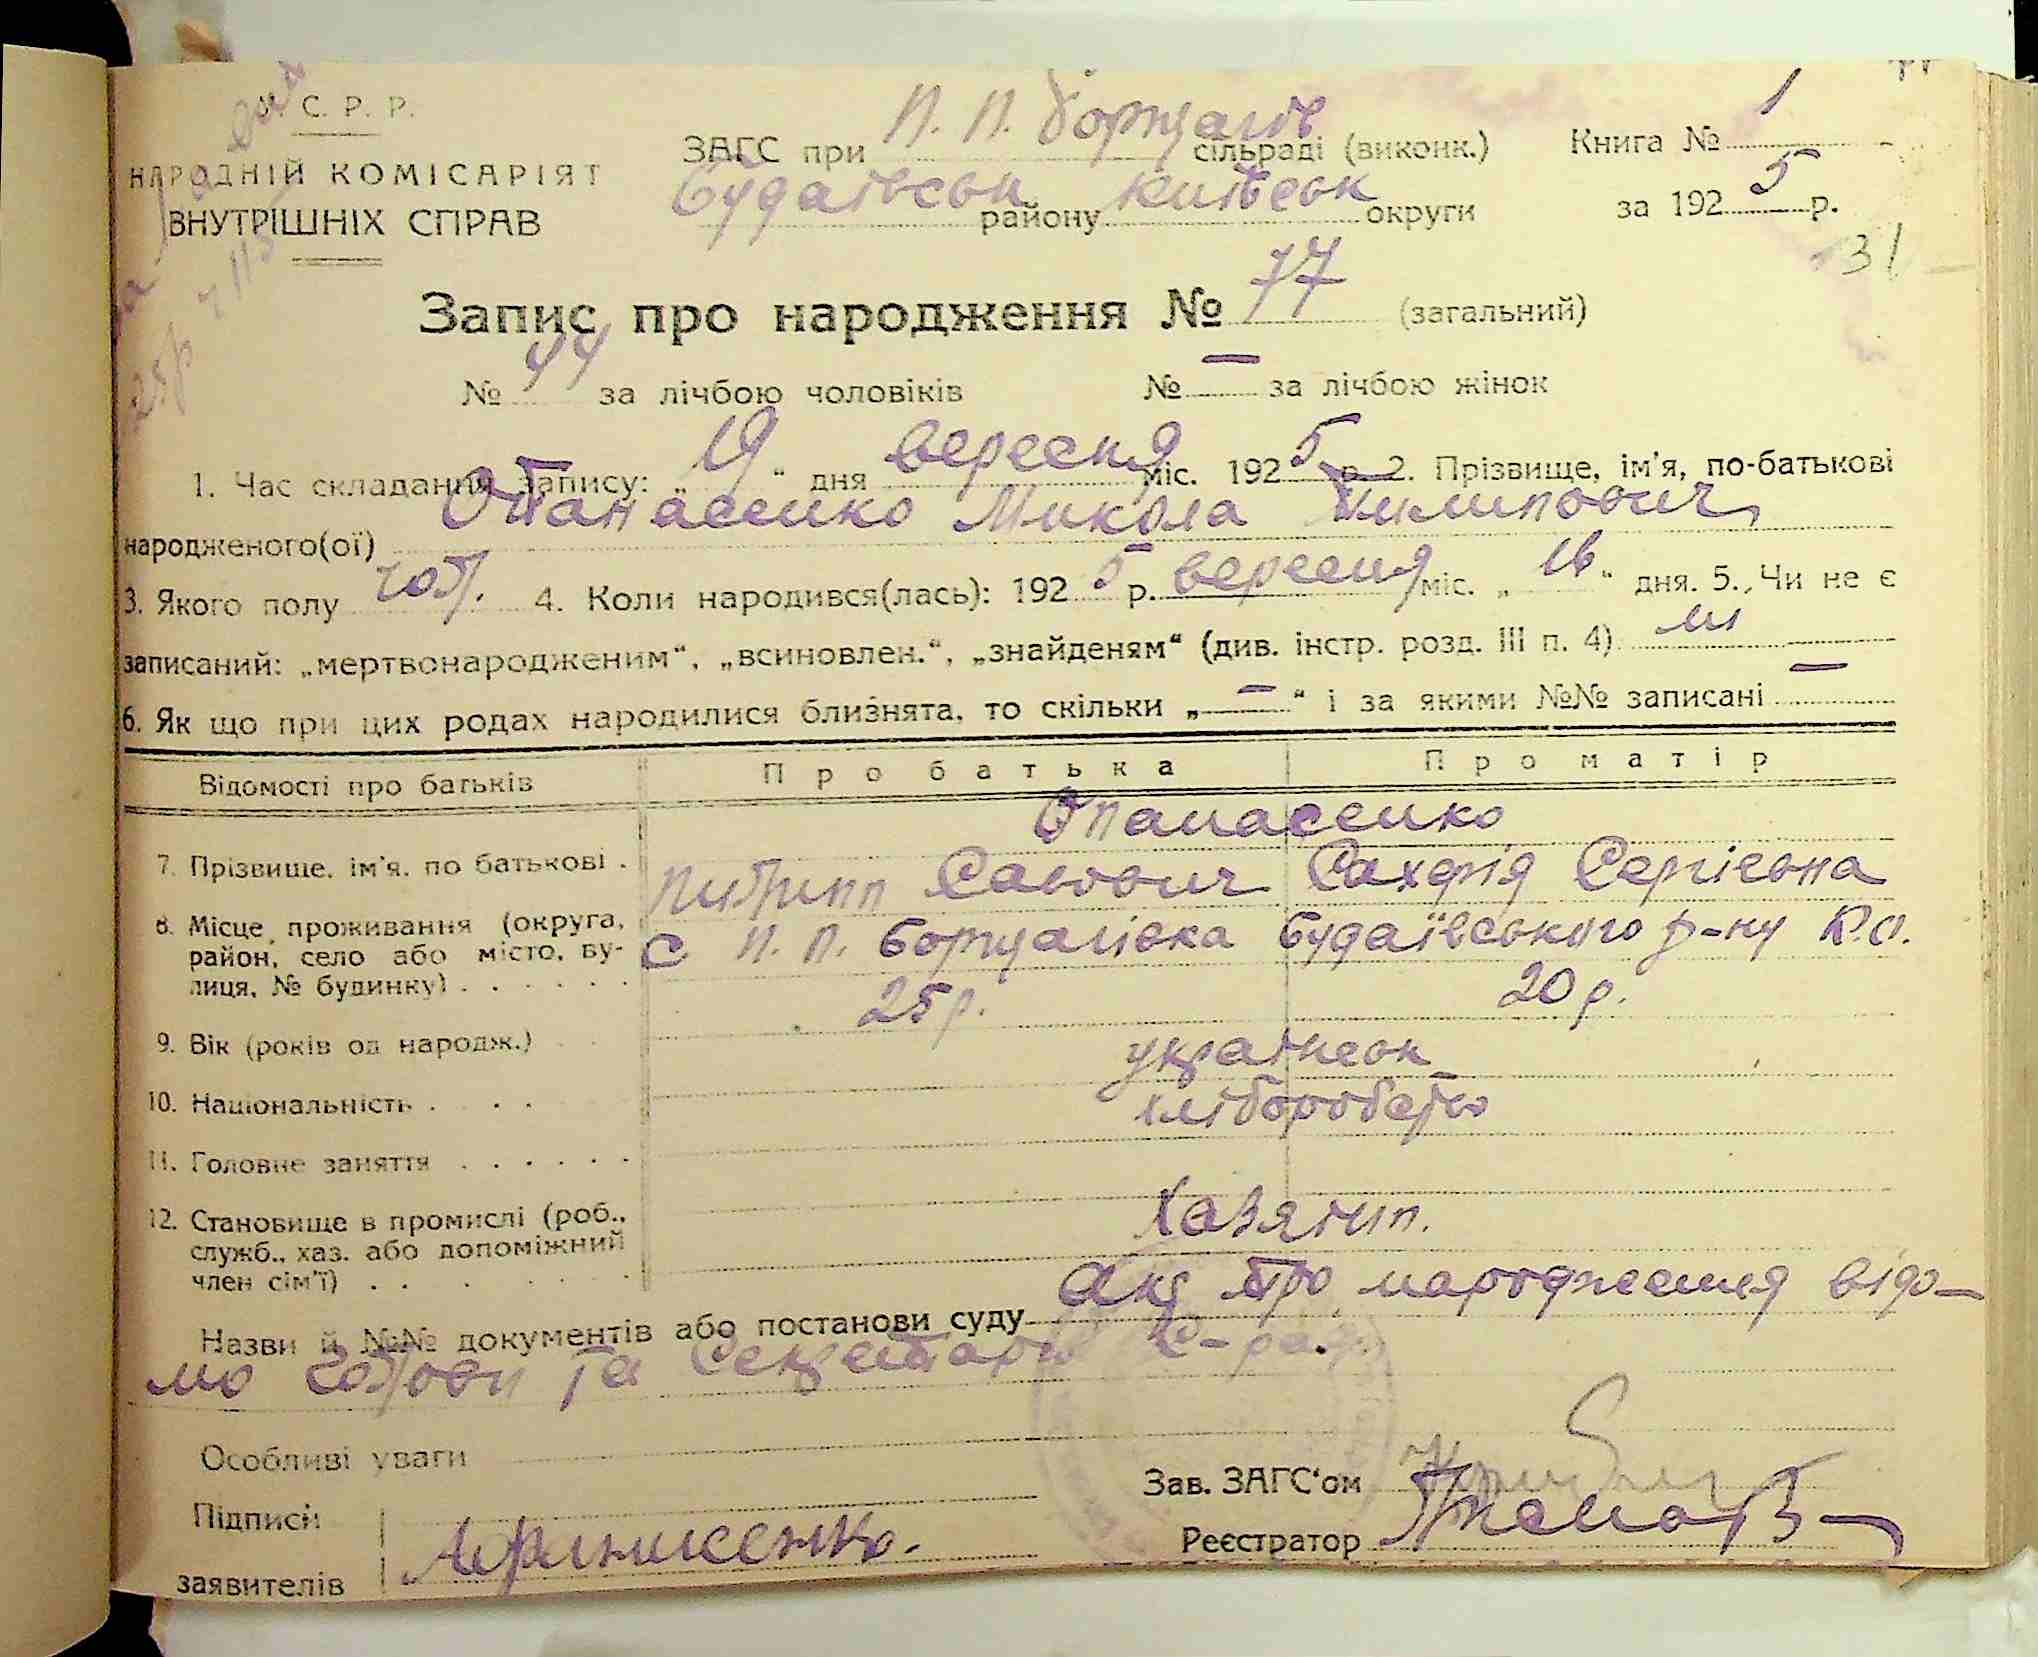 У. С. Р. Р.
НАРОДНІЙ КОМІСАРІЯТ
ВНУТРІШНІХ СПРАВ
ЗАГС при П. П. Борщагів сільраді (виконк.)
Будаївськ району Київськ округи
Книга № 1
за 1925 р.
131
Запис про народження № 77 (загальний)
№ 44 за лічбою чоловіків № — за лічбою жінок
1. Час складання запису: „19“ дня вересня міс. 1925 р. 2. Прізвище, ім'я, по-батькові
народженого(ої) Опанасенко Микола Пилипович
3. Якого полу чол. 4. Коли народився(лась): 1925 р. вересня міс. „16“ дня. 5. Чи не є
записаний: „мертвонародженим“, „всиновлен.“, „знайденям“ (див. інстр. розд. III п. 4) ні
6. Як що при цих родах народилися близнята, то скільки „—“ і за якими №№ записані —
Відомості про батьків Про батька Про матір
Опанасенко
7. Прізвище, ім'я, по батькові . Пилип Савович Сахфія Сергієвна
8. Місце проживання (округа, район, село або місто, вулиця, № будинку) . . . . . . с П. П. Борщагівка Будаївського р-ну К.О.
9. Вік (років од народж.) 25 р. 20 р.
10. Національність . . . . українськ
11. Головне заняття . . . . . . хлібороб
12. Становище в промислі (роб., служб., хаз. або допоміжний член сім'ї) . . Хазяїин.
Назви й №№ документів або постанови суду Акт про народження відо-
мо Голови та Секретарю С-ради
Особливі уваги
Зав. ЗАГС'ом
Підписи
заявителів
Реєстратор